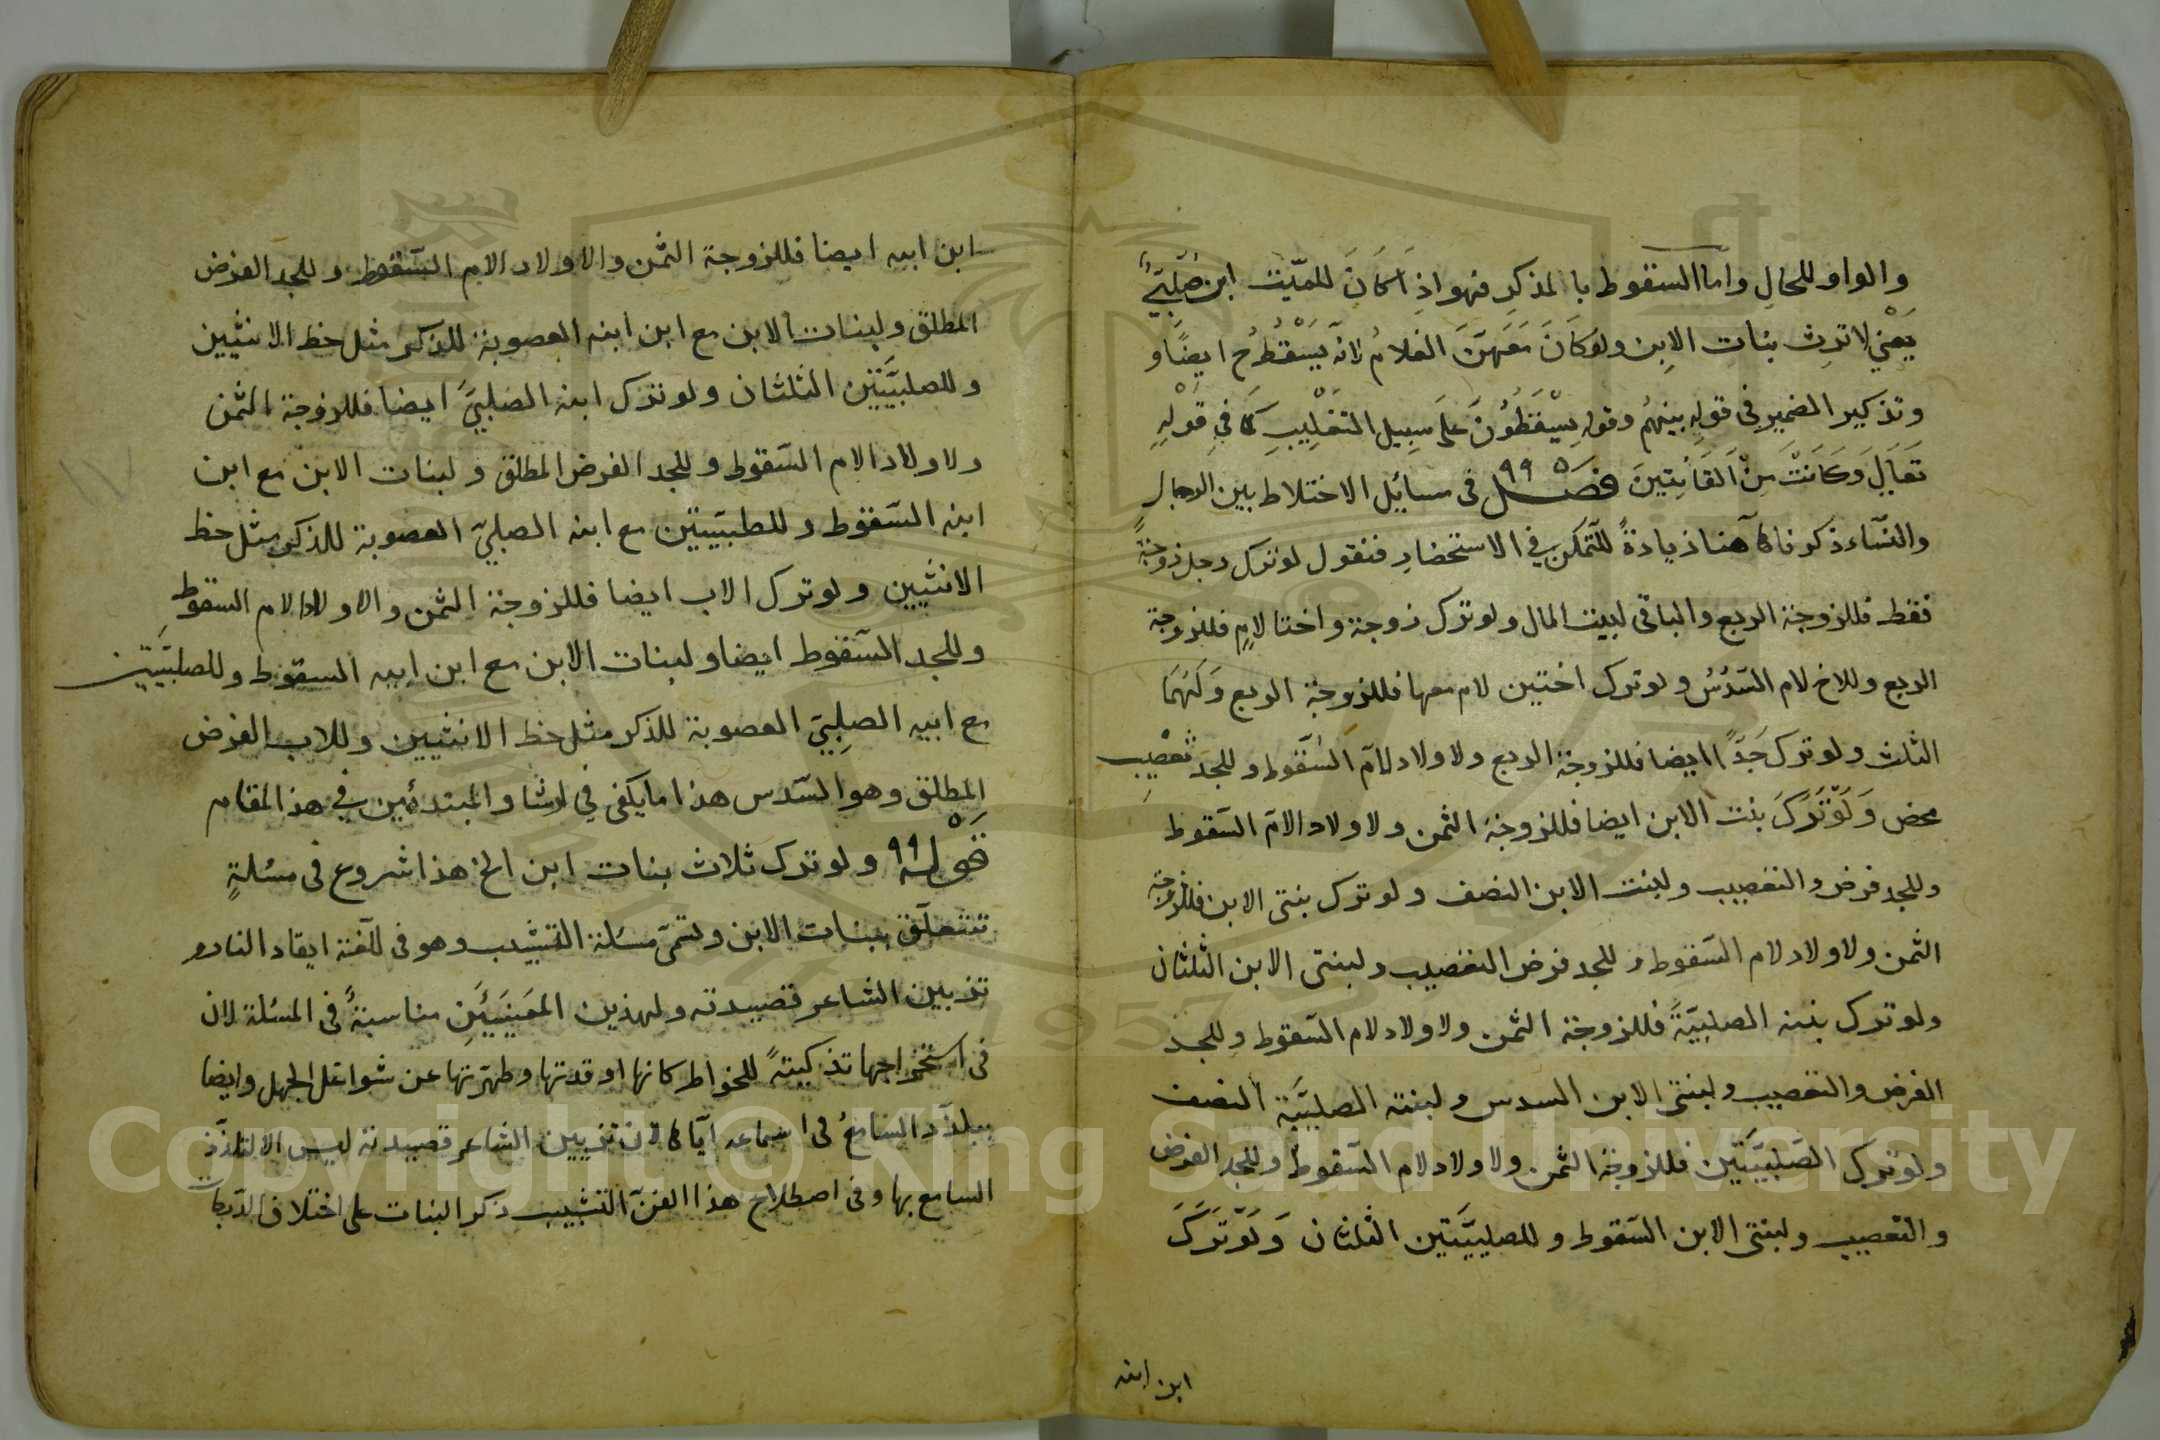 والواو للحال واما السقوط بالمذكر فهو اذا كان للميت ابن صلبي
يعني لا ترث بنات الابن ولو كان معهن الغلام لانه يسقط ايضا و
وتذكير الضمير في قوله بينهم وقوله يسقطون على سبيل التغليب كما في قوله
تعالى وكانت من القانتين فصل في مسايل الاختلاط بين الرجال
والنساء ذكرناها هنا زيادة للتمكن في الاستحضار فنقول لو ترك رجل زوجة
فقط فللزوجة الربع والباقي لبيت المال ولو ترك زوجة واختا لام فللزوجة
الربع وللاخ لام السدس ولو ترك اختين لام معها فللزوجة الربع ولهما
الثلث ولو ترك جدا ايضا فللزوجة الربع ولاولاد لام السقوط وللجد تعصيب
محض ولو ترك بنت الابن ايضا فللزوجة الثمن ولاولاد الام السقوط
وللجد فرض والتعصيب ولبنت الابن النصف ولو ترك بنتي الابن فللزوجة
الثمن ولاولاد لام السقوط وللجد فرض التعصيب ولبنتي الابن الثلثان
ولو ترك بنته الصلبية فللزوجة الثمن ولاولاد لام السقوط وللجد
الفرض والتعصيب ولبنتي الابن السدس ولبنته الصلبية النصف
ولو ترك الصلبيتين فللزوجة الثمن ولاولاد لام السقوط وللجد الفرض
والتعصيب ولبنتي الابن السقوط وللصلبيتين الثلثان ولو ترك
ابن ابنه
ابن ابيه ايضا فللزوجة الثمن والاولاد الام السقوط وللجد الفرض
المطلق ولبنات الابن مع ابن ابنه العصوبة للذكر مثل حظ الانثيين
وللصلبيتين الثلثان ولو ترك ابنه الصلبي ايضا فللزوجة الثمن
ولاولاد الام السقوط وللجد الفرض المطلق ولبنات الابن مع ابن
ابنه السقوط وللصلبيتين مع ابنه الصلبي العصوبة للذكر مثل حظ
الانثيين ولو ترك الاب ايضا فللزوجة الثمن والاولاد الام السقوط
وللجد السقوط ايضا ولبنات الابن مع ابن ابيه السقوط وللصلبيتين
مع ابيه الصلبي العصوبة للذكر مثل حظ الانثيين وللاب الفرض
المطلق وهو السدس هذا ما يكفي في ارشاد المبتدئين في هذا المقام
قوله ولو ترك ثلاث بنات ابن الخ هذا شروع في مسئلة
تتعلق ببنات الابن وتسمى مسئلة التشبيب وهو في اللغة ايقاد النار و
تزيين الشاعر قصيدته ولهذين المعنيين مناسبة في المسئلة لان
في استخراجها تذكية للخواطر كانها اوقدتها وطهرتها عن شواغل الجهل وايضا
يتلذذ السامع في استماعه اياها لان تزيين الشاعر قصيدته ليس الا لتلذذ
السامع بها وفي اصطلاح هذا الفن التشبيب ذكر البنات على اختلاف الدرجات
Copyright © King Saud University
1957